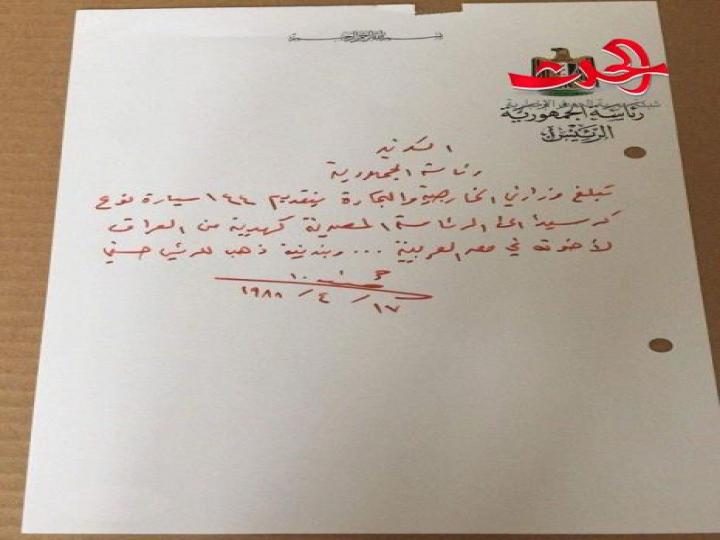 بسم الله الرحمن الرحيم
رئاسة الجمهورية
الرئيس
السكرتير
رئاسة الجمهورية
تبلغ وزارتي الخارجية والتجارة بتقديم ١٤٤ سيارة نوع
مرسيدس الى الرئاسة المصرية كهدية من العراق
لأخوته في مصر العربية ... وبندقية ذهب للرئيس حسني
١٧ / ٤ / ١٩٨٨